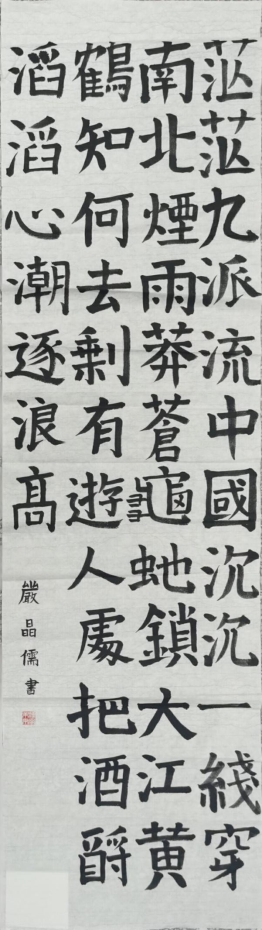 茫茫九派流中國沉沉一綫穿
南北煙雨莽蒼龜虵鎖大江黄
鶴知何去剩有遊人處把酒酹
滔滔心潮逐浪髙
嚴晶儒書